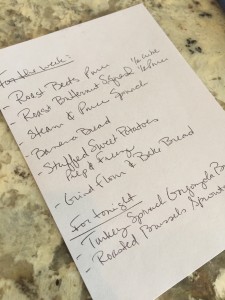 For the week:
- Roast Beets Puree
- Roast Butternut Squash
- Steam & Puree Spinach
- Banana Bread
- Stuffed Sweet Potatoes
Prep & Freeze
- Grind Flour & Bake Bread
For tonight
- Turkey Spinach Gorgonzola
- Roasted Brussels Sprouts